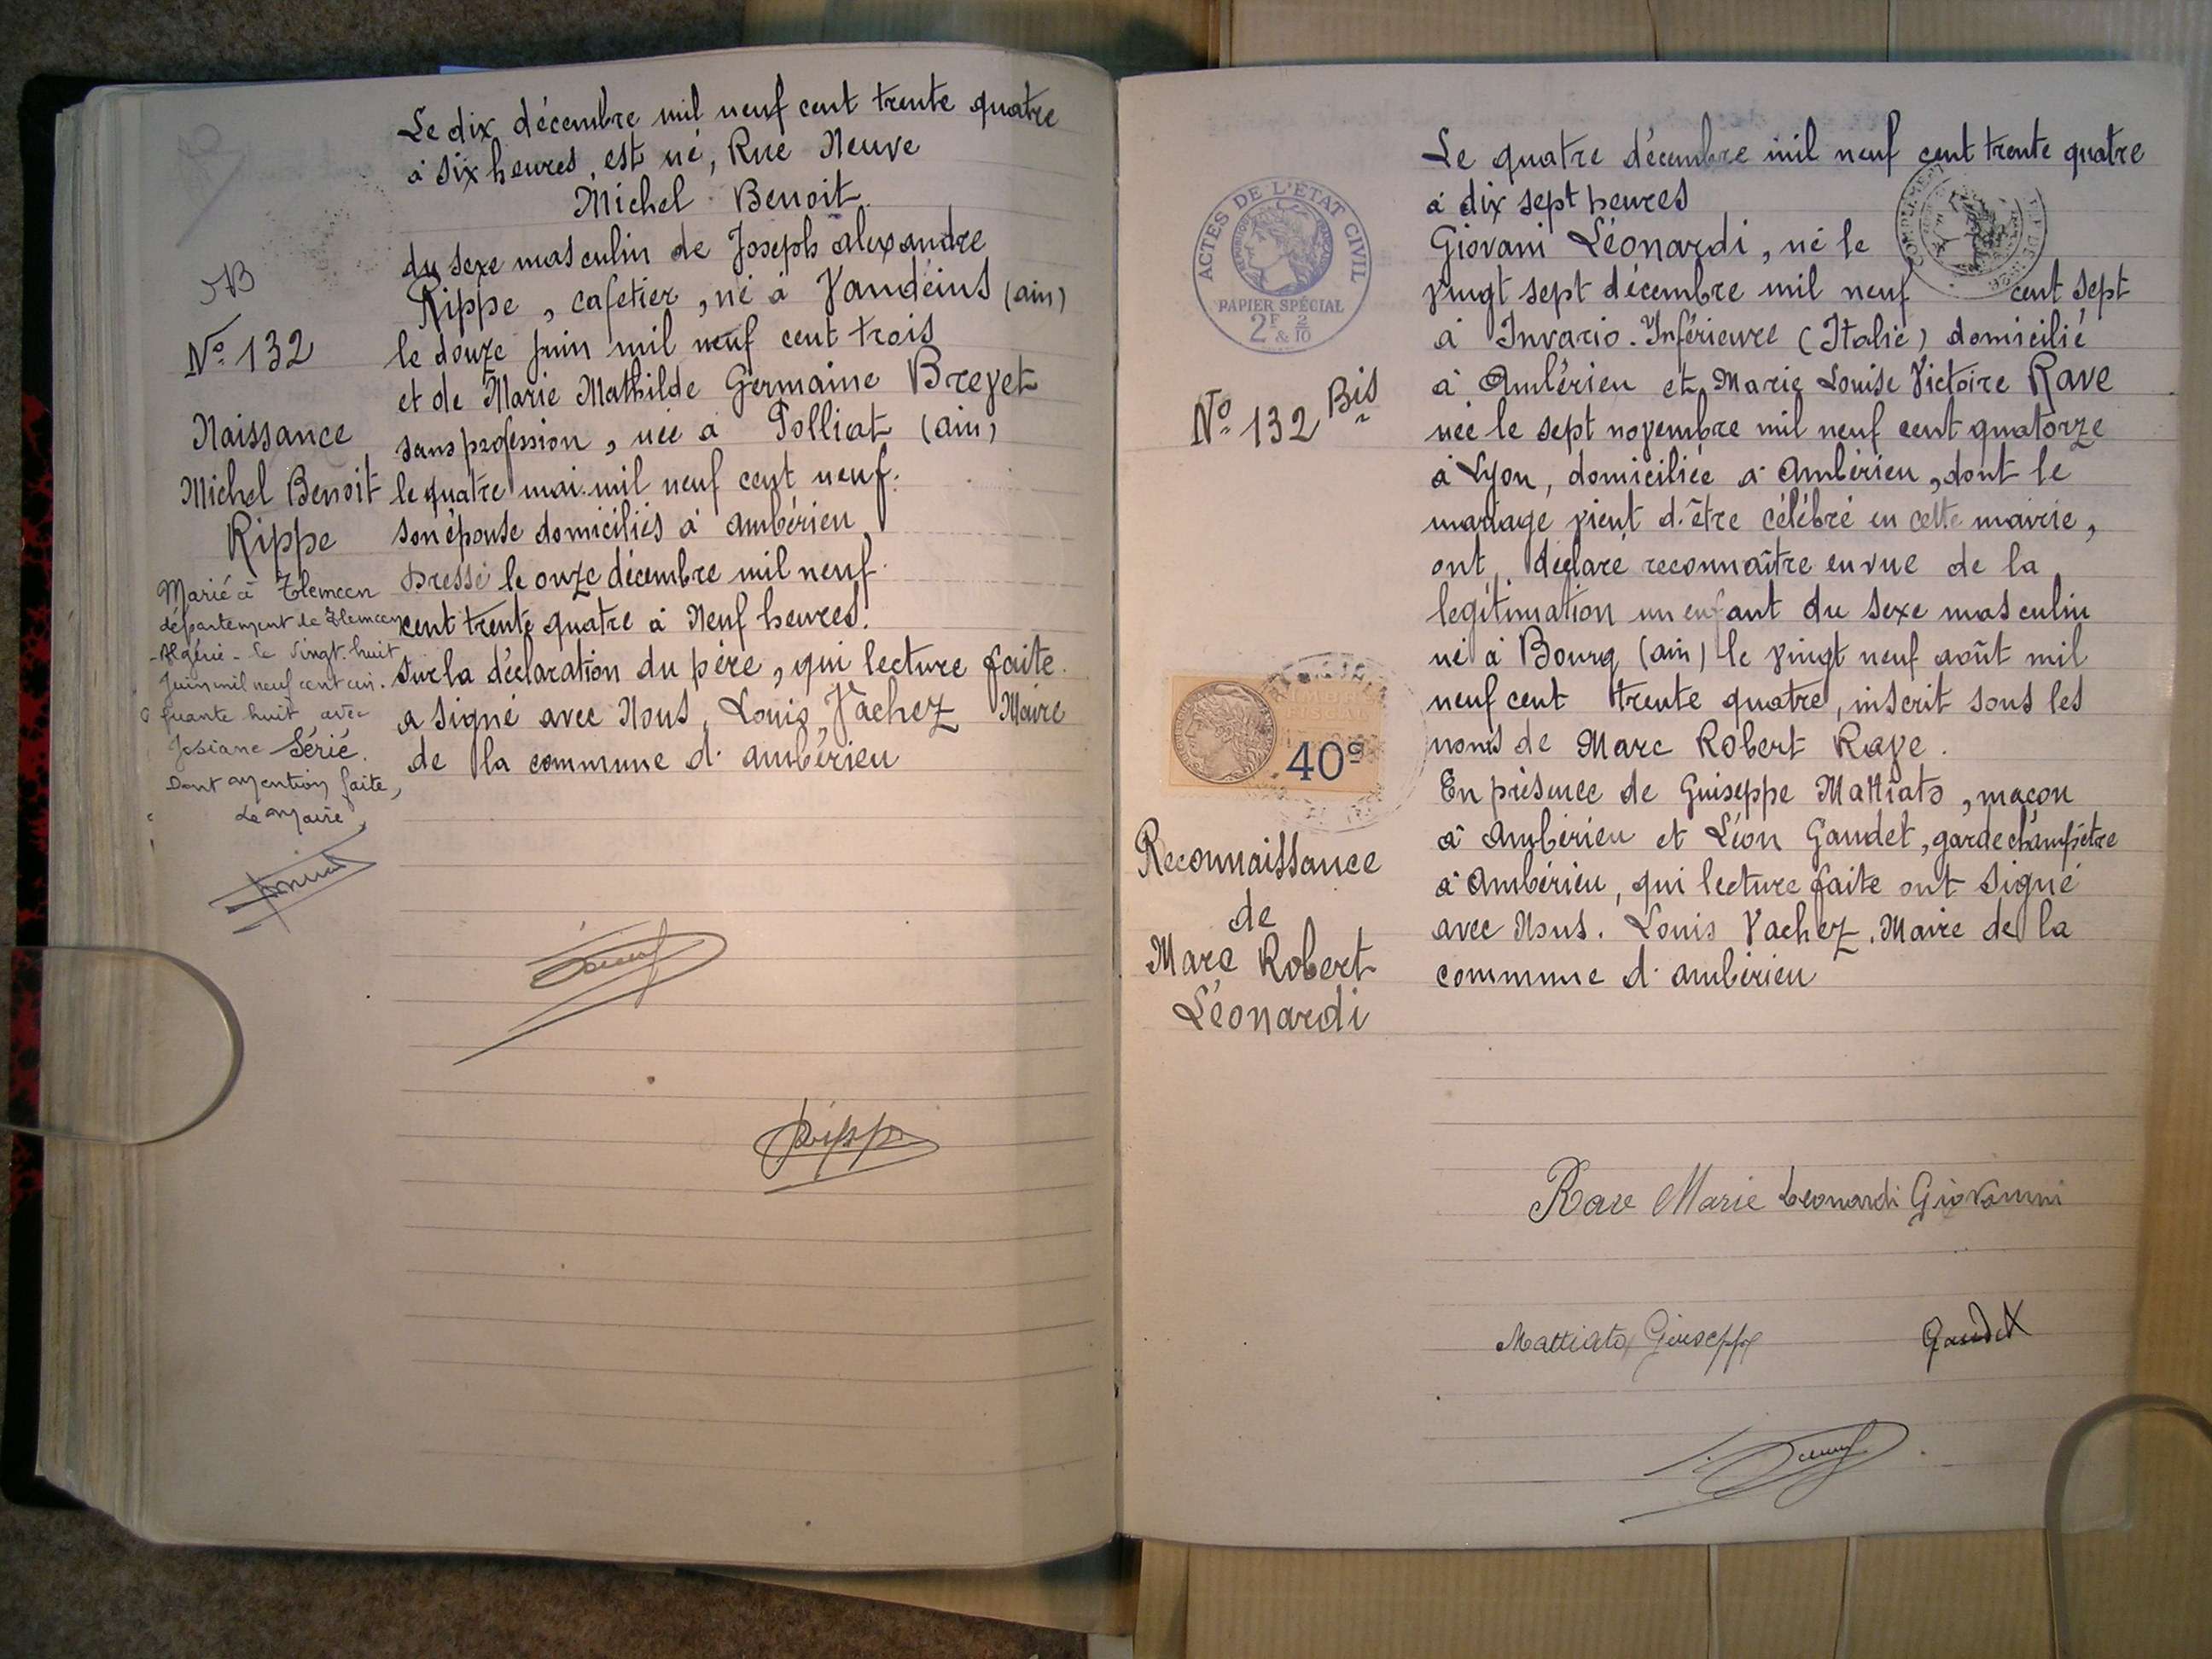 NB
N° 132
Naissance
Michel Benoit
Rippe
Marié à Tlemcen
département de Tlemcen
- Algérie - le vingt-huit
Juin mil neuf cent cin-
quante huit avec
Josiane Sérié.
Dont mention faite,
Le Maire,
Le dix décembre mil neuf cent trente quatre
à six heures, est né, Rue Neuve
Michel Benoit
du sexe masculin de Joseph Alexandre
Rippe, cafetier, né à Vandeins (Ain)
le douze juin mil neuf cent trois
et de Marie Mathilde Germaine Breyet
sans profession, née à Polliat (Ain)
le quatre mai mil neuf cent neuf.
son épouse domiciliés à Ambérieu
Dressé le onze décembre mil neuf
cent trente quatre à Neuf heures.
sur la déclaration du père, qui lecture faite
a signé avec Nous, Louis Vachez Maire
de la commune d'Ambérieu
Rippe
ACTES DE L'ÉTAT CIVIL
PAPIER SPÉCIAL
2F & 2/10
N° 132 Bis
40c
Reconnaissance
de
Marc Robert
Léonardi
Le quatre décembre mil neuf cent trente quatre
à dix sept heures
Giovani Léonardi, né le
vingt sept décembre mil neuf cent sept
à Invario-Inférieure (Italie) domicilié
à Ambérieu et Marie Louise Victoire Rave
née le sept novembre mil neuf cent quatorze
à Lyon, domiciliée à Ambérieu, dont le
mariage vient d'être célébré en cette mairie,
ont déclaré reconnaître en vue de la
légitimation un enfant du sexe masculin
né à Bourg (Ain) le vingt neuf août mil
neuf cent trente quatre, inscrit sous les
noms de Marc Robert Rave.
En présence de Guiseppe Mattiato, maçon
à Ambérieu et Léon Gaudet, garde champêtre
à Ambérieu, qui lecture faite ont signé
avec Nous. Louis Vachez, Maire de la
commune d'Ambérieu
Rave Marie Leonardi Giovanni
Mattiato Giuseppe Gaudet